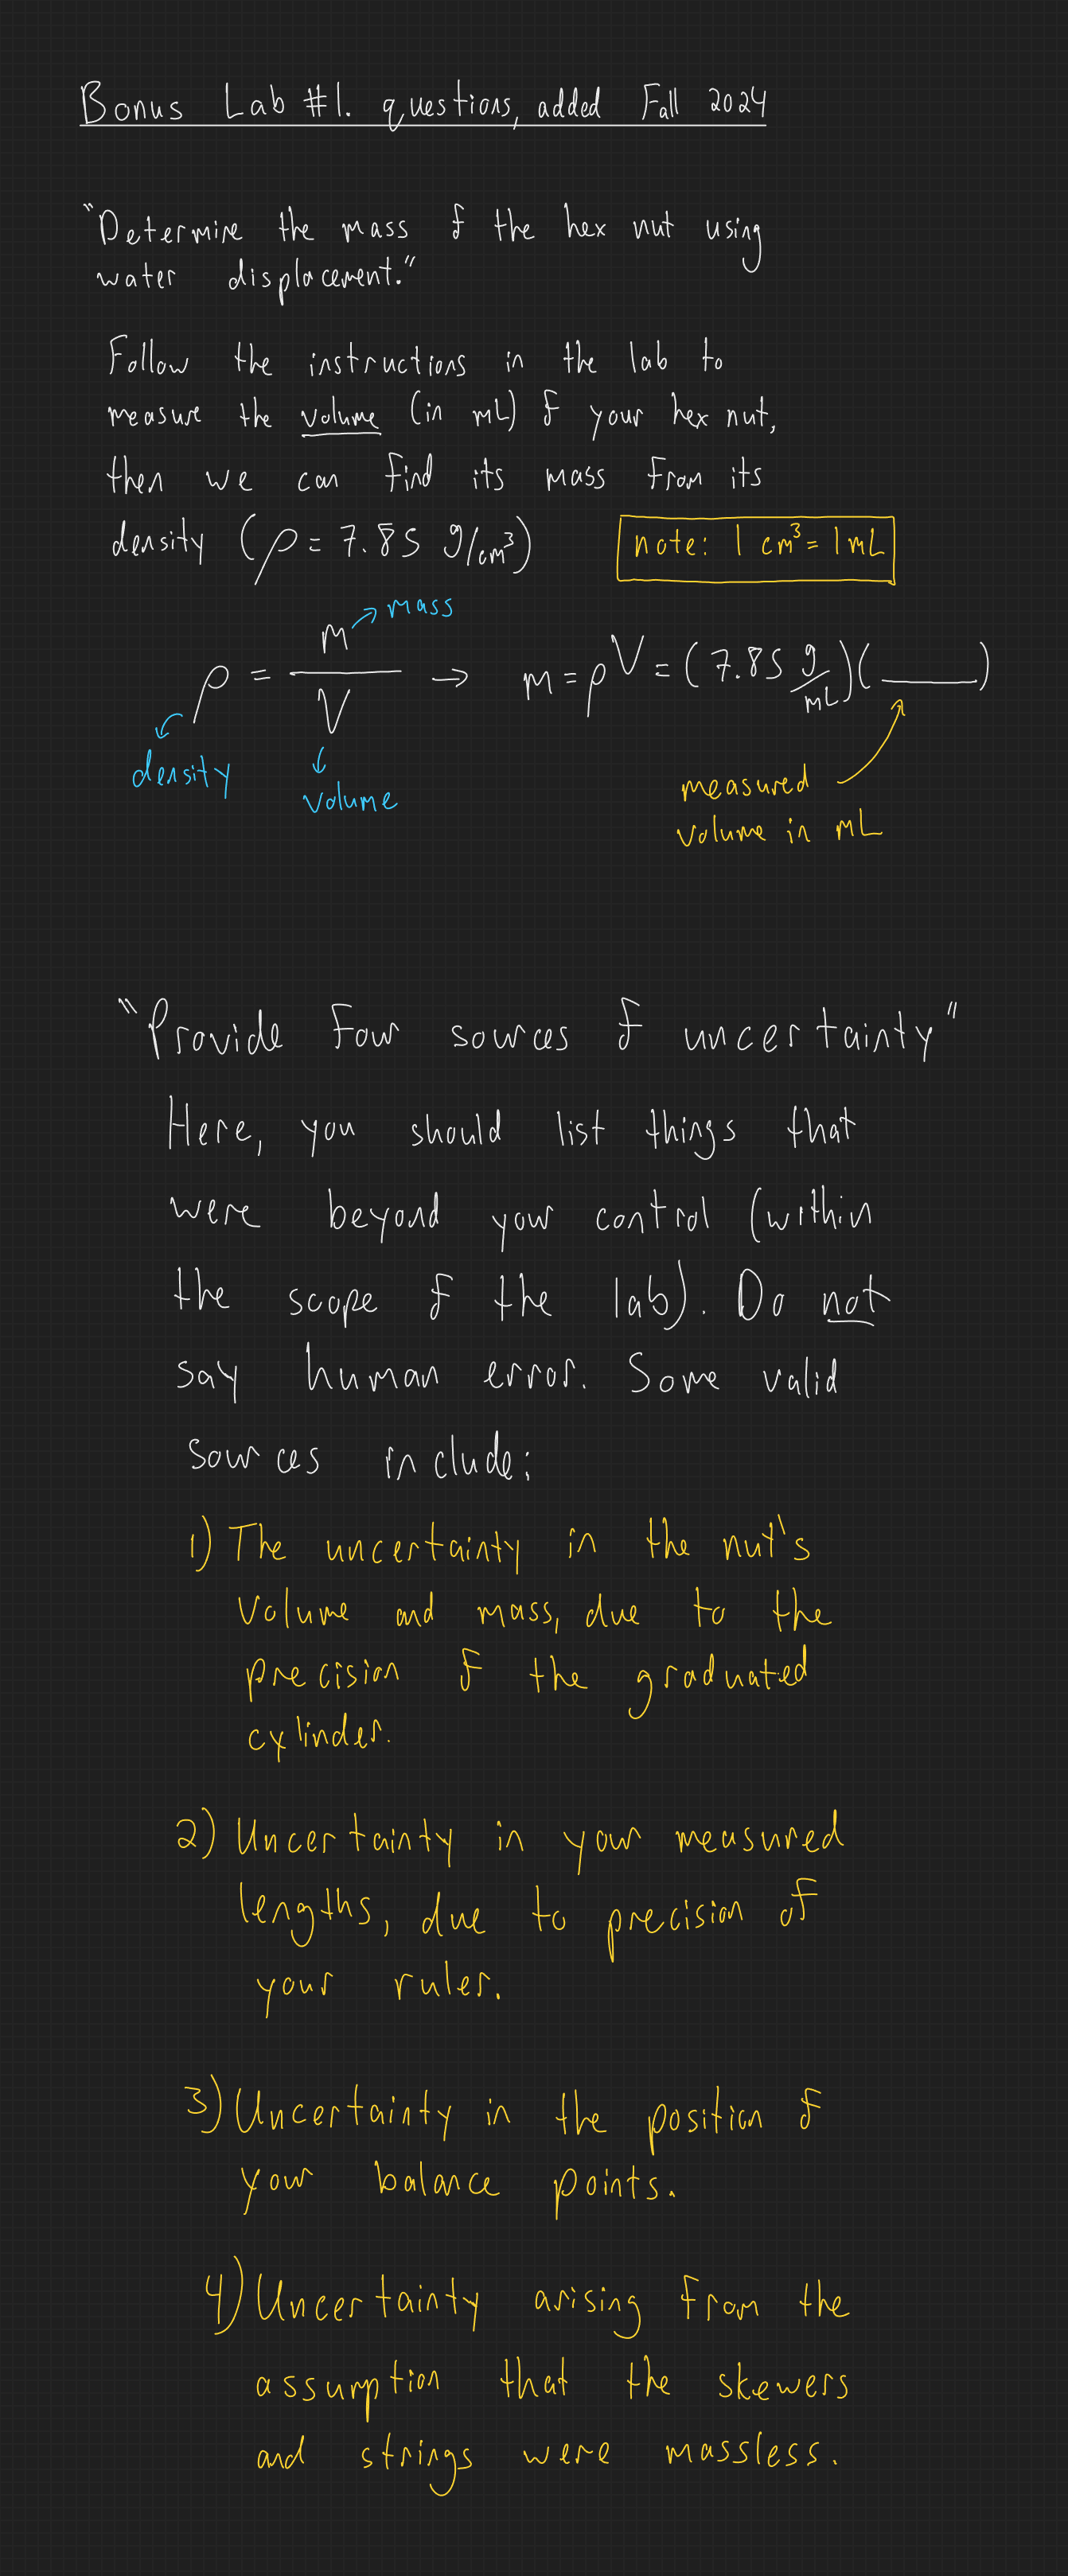 Bonus Lab #1. questions, added Fall 2024
"Determine the mass of the hex nut using
water displacement."
Follow the instructions in the lab to
measure the volume (in mL) of your hex nut,
then we can find its mass from its
density (ρ = 7.85 g/cm³)
note: 1 cm³ = 1 mL
ρ = m/V → m = ρV = (7.85 g/mL)(____)
mass
density
volume
measured
volume in mL
"Provide four sources of uncertainty"
Here, you should list things that
were beyond your control (within
the scope of the lab). Do not
say human error. Some valid
sources include:
1) The uncertainty in the nut's
volume and mass, due to the
precision of the graduated
cylinder.
2) Uncertainty in your measured
lengths, due to precision of
your ruler.
3) Uncertainty in the position of
your balance points.
4) Uncertainty arising from the
assumption that the skewers
and strings were massless.